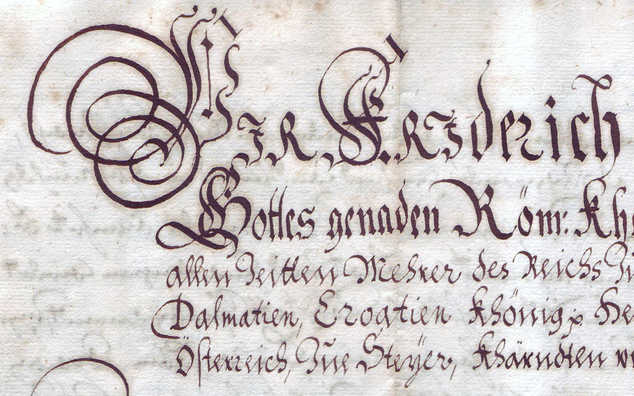 Wir Friderich
Gottes genaden Röm: Kh
allen Zeitten Mehrer des Reichs Zu
Dalmatien, Croatien Khönig &c He
Österreich, Zue Steyer, Khärndten